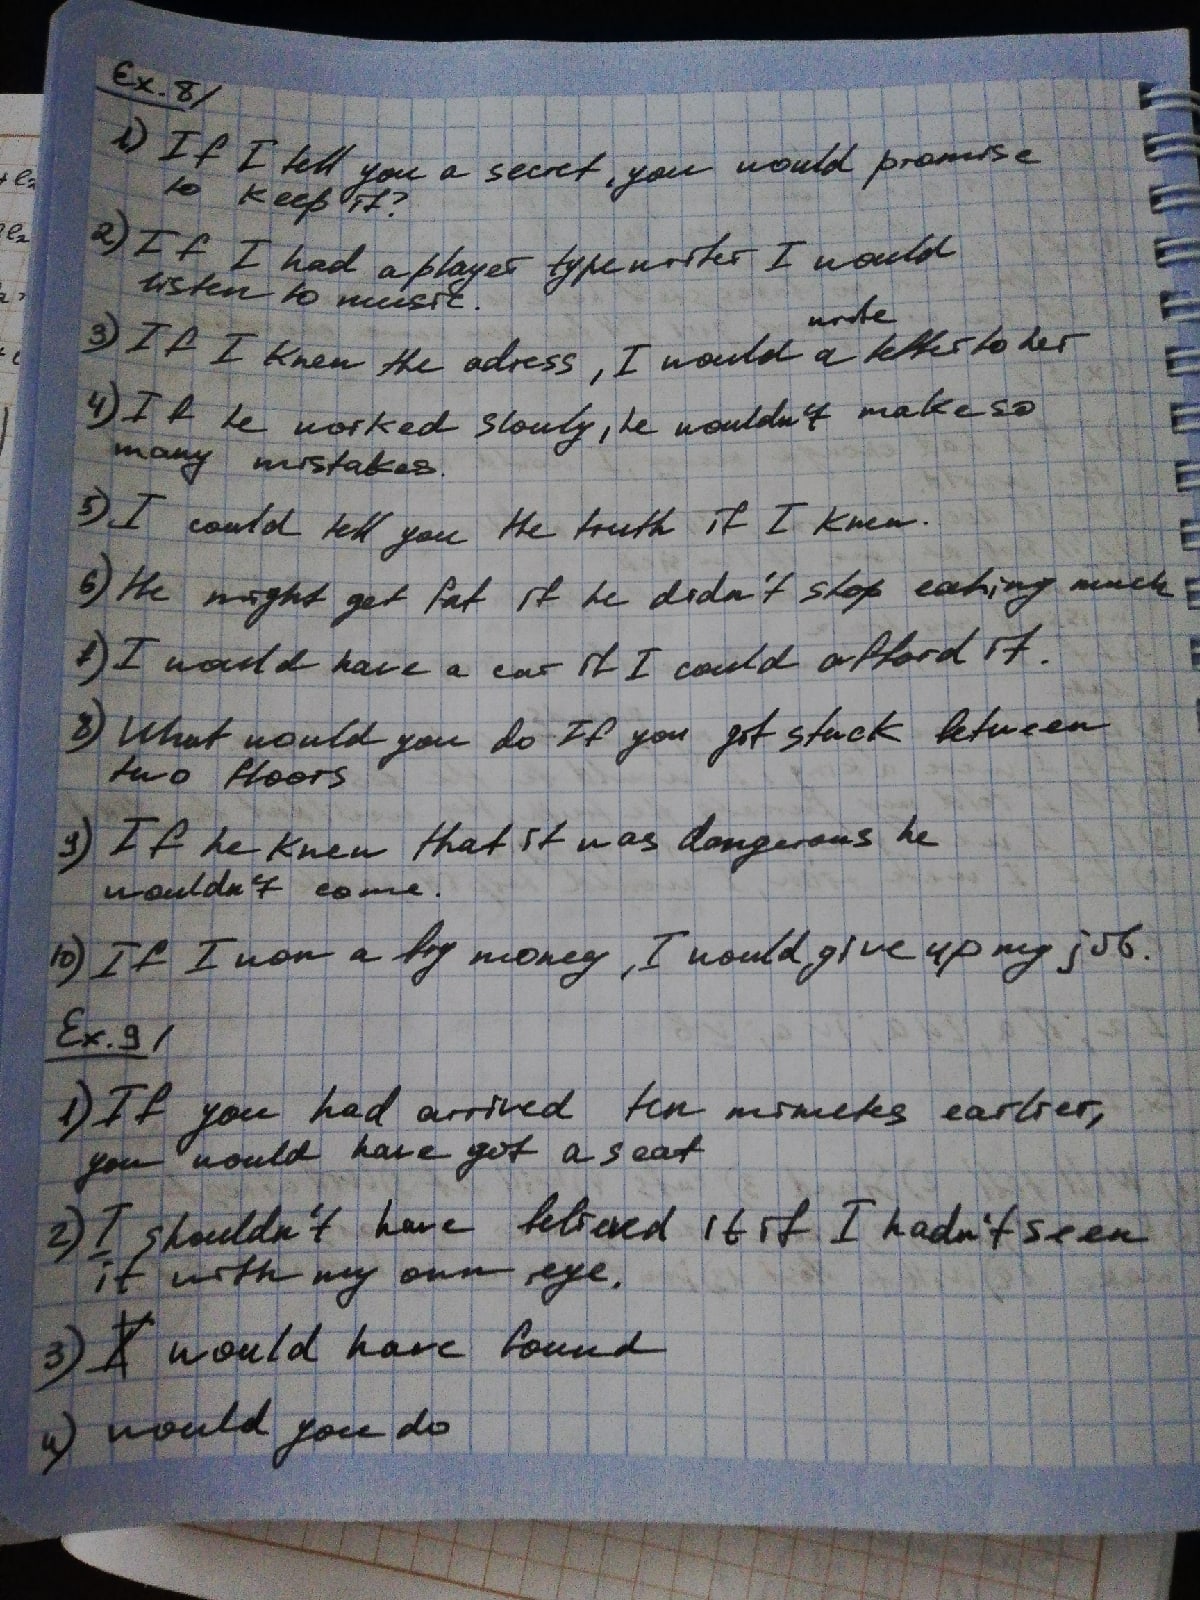 Ex. 8/
1) If I tell you a secret, you would promise
to keep it?
2) If I had a player typewriter I would
listen to music.
write
3) If I knew the adress, I would a letter to her
4) If he worked slowly, he wouldn't make so
many mistakes.
5) I could tell you the truth if I knew.
6) He might get fat if he didn't stop eating much
7) I would have a car if I could afford it.
8) What would you do If you got stuck between
two floors
9) If he knew that it was dangerous he
wouldn't come.
10) If I won a big money, I would give up my job.
Ex. 9/
1) If you had arrived ten minetes earlier,
you would have got a seat
2) I shouldn't have believed it if I hadn't seen
it with my own eye.
3) would have found
4) would you do